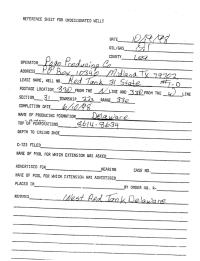 REFERENCE SHEET FOR UNDESIGNATED WELLS
DATE 10/29/98
OIL/GAS Oil
COUNTY Lea
OPERATOR Pogo Producing Co
ADDRESS PO Box 10340 Midland Tx 79702
LEASE NAME, WELL NO. Red Tank 31 State #7-D
FOOTAGE LOCATION 330 FROM THE N LINE AND 330 FROM THE W LINE
SECTION 31 TOWNSHIP 22s RANGE 33e
COMPLETION DATE 6/10/98
NAME OF PRODUCING FORMATION Delaware
TOP OF PERFORATIONS 8614-8634
DEPTH TO CASING SHOE
C-123 FILED
NAME OF POOL FOR WHICH EXTENSION WAS ASKED
ADVERTISED FOR HEARING CASE NO.
NAME OF POOL FOR WHICH EXTENSION WAS ADVERTISED
PLACED IN BY ORDER NO. R-
REMARKS West Red Tank Delaware